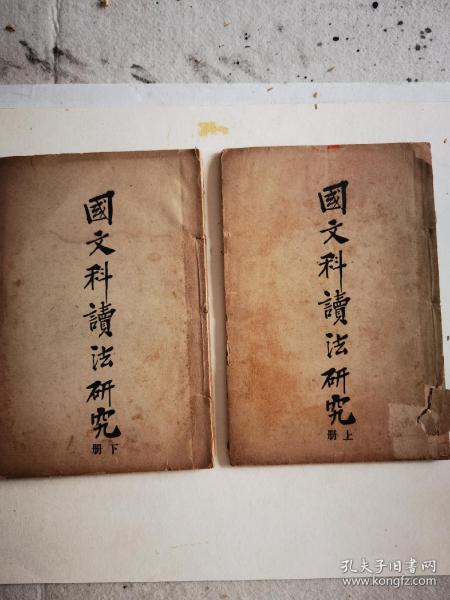 國文科讀法研究
上册
國文科讀法研究
下册
孔夫子旧书网
www.kongfz.com